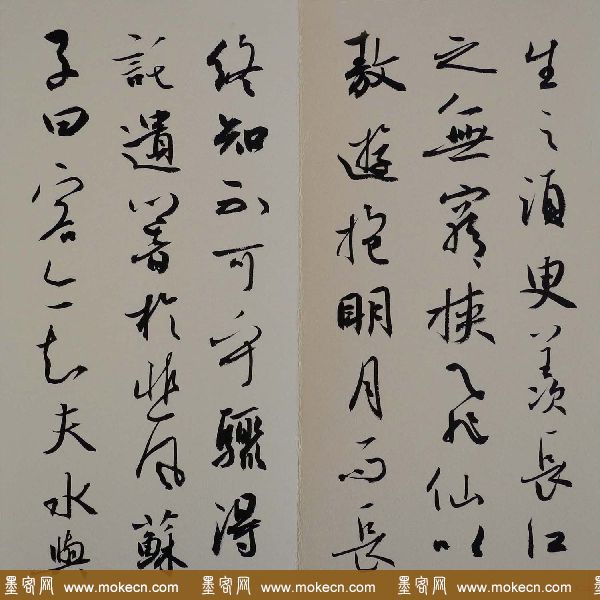 生之須臾羨長江
之無窮挾飛仙以
敖遊抱明月而長
終知不可乎驟得
託遺響於悲風蘇
子曰客亦知夫水與
墨客网 www.mokecn.com 墨客网 www.mokecn.com 墨客网 www.mokecn.com